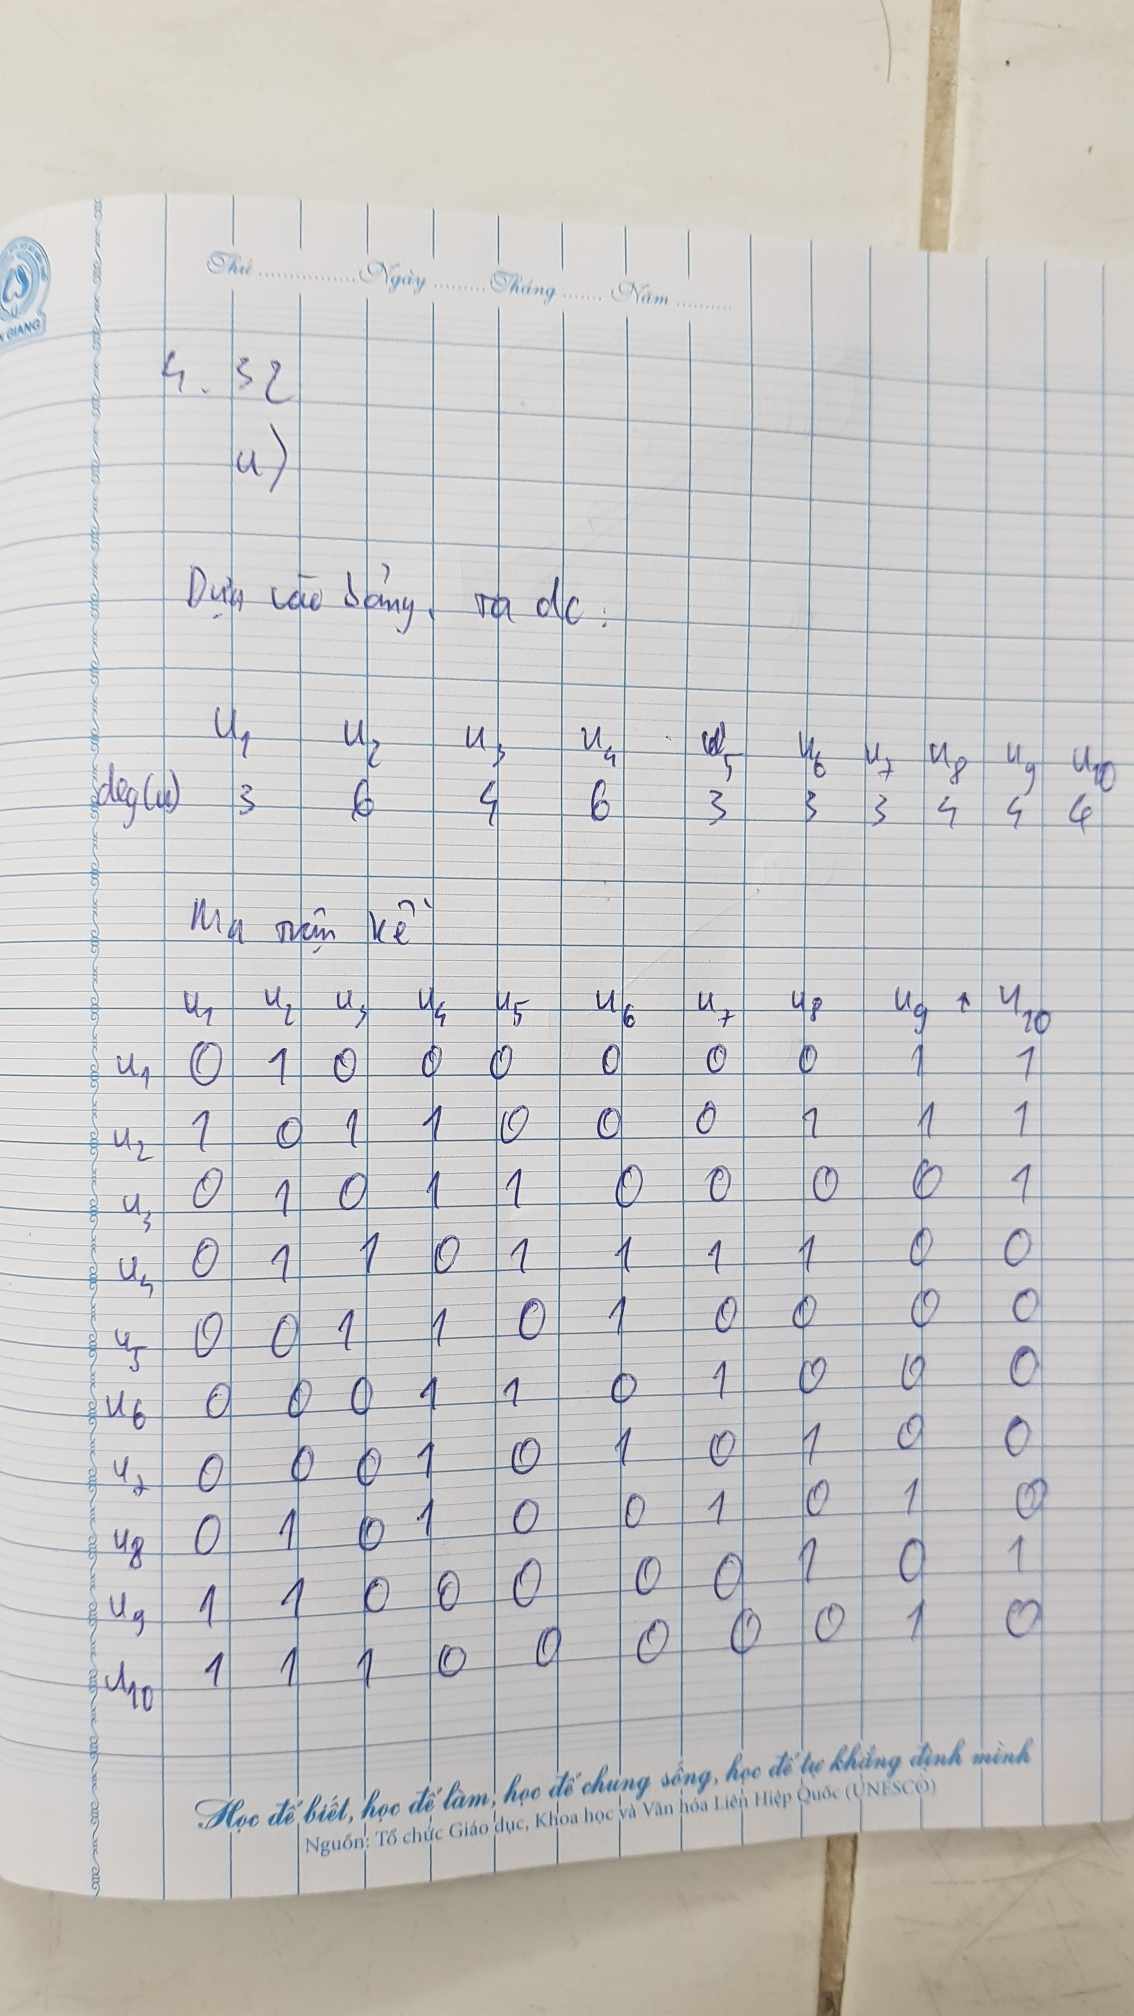 GIANG
Thứ ................. Ngày ......... Tháng ....... Năm ..........
4. 32
a)
Dựa vào bảng, ta đc:
u1 u2 u3 u4 u5 u6 u7 u8 u9 u10
deg(u) 3 6 4 6 3 3 3 4 4 4
Ma trận kề
u1 u2 u3 u4 u5 u6 u7 u8 u9 u10
u1 0 1 0 0 0 0 0 0 1 1
u2 1 0 1 1 0 0 0 1 1 1
u3 0 1 0 1 1 0 0 0 0 1
u4 0 1 1 0 1 1 1 1 0 0
u5 0 0 1 1 0 1 0 0 0 0
u6 0 0 0 1 1 0 1 0 0 0
u7 0 0 0 1 0 1 0 1 0 0
u8 0 1 0 1 0 0 1 0 1 0
u9 1 1 0 0 0 0 0 1 0 1
u10 1 1 1 0 0 0 0 0 1 0
Học để biết, học để làm, học để chung sống, học để tự khẳng định mình
Nguồn: Tổ chức Giáo dục, Khoa học và Văn hóa Liên Hiệp Quốc (UNESCO)